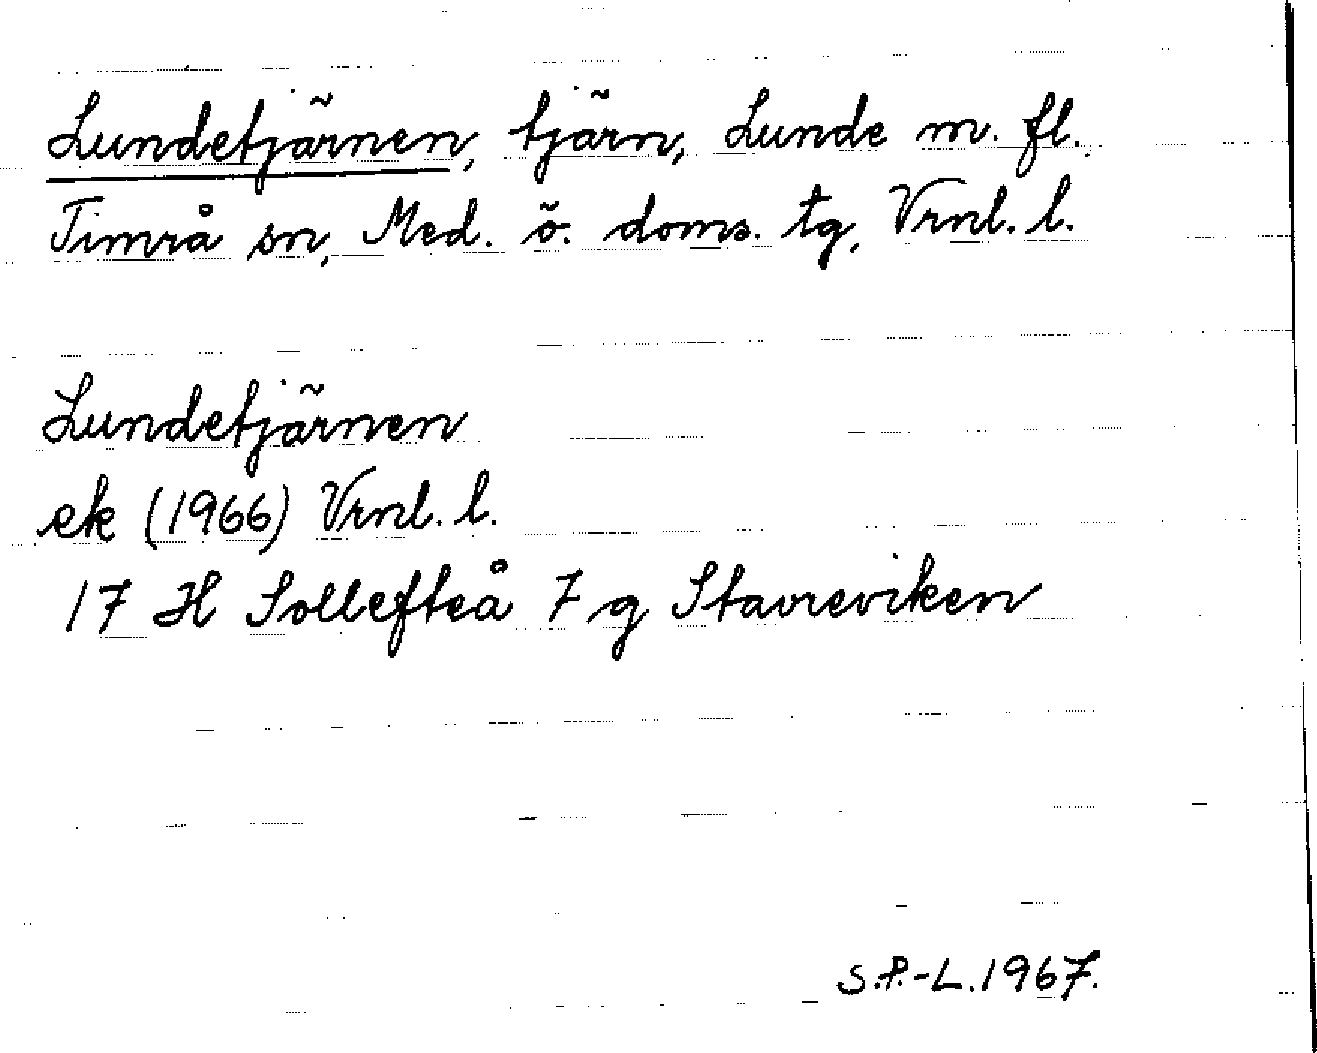 Lundetjärnen, tjärn, Lunde m. fl.
Timrå sn, Med. ö. doms. tg, Vrnl. l.
Lundetjärnen
ek (1966) Vrnl. l.
17 H Sollefteå 7 g Stavreviken
S.P.-L. 1967.